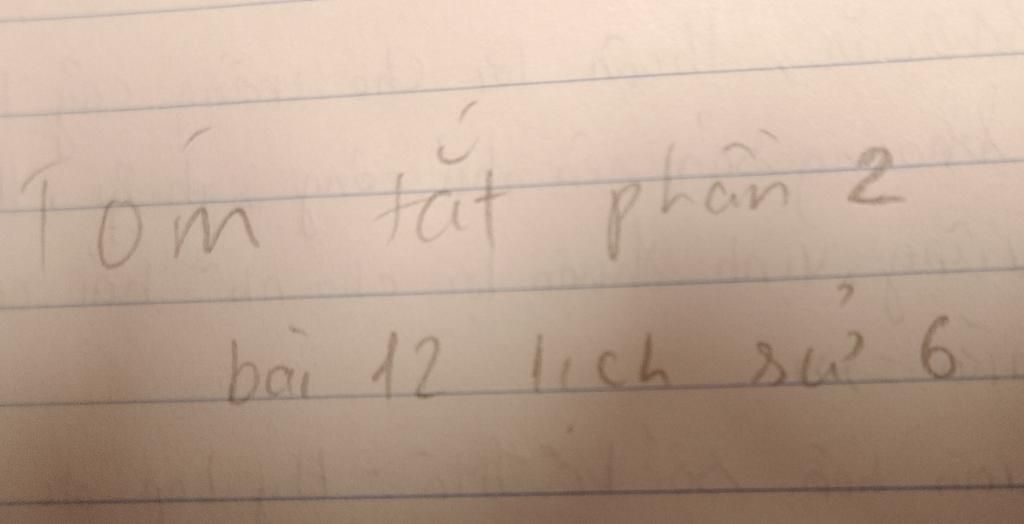 Tóm tắt phần 2
bài 12 lịch sử 6